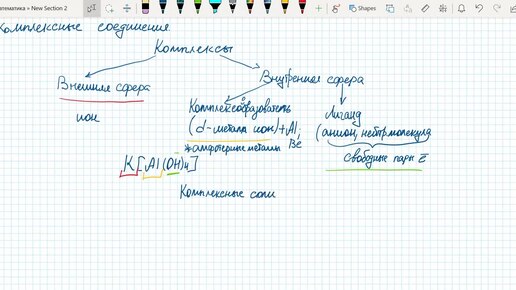 атематика » New Section 2
Shapes
Комплексные соединения
Комплексы
Внешняя сфера
Внутренняя сфера
ион
Комплексообразователь
(d-металл ион)+Al,
Be
* амфотерные металлы
Лиганд
(анион, нейтр молекула
свободные пары ē
K[Al(OH)₄]
Комплексные соли